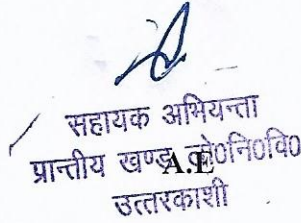 सहायक अभियन्ता
प्रान्तीय खण्ड लो०नि०वि०
A.E
उत्तरकाशी